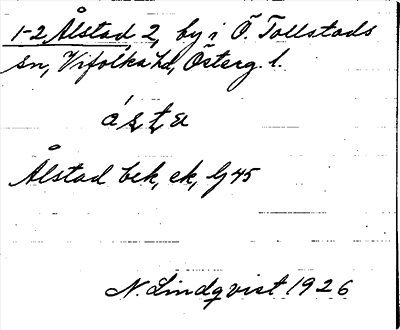 1-2 Ålstad 2, by i Ö. Tollstads
sn, Vifolka hd, Österg. l.
Ålstad bek, ek, G 45
N. Lindqvist 1926